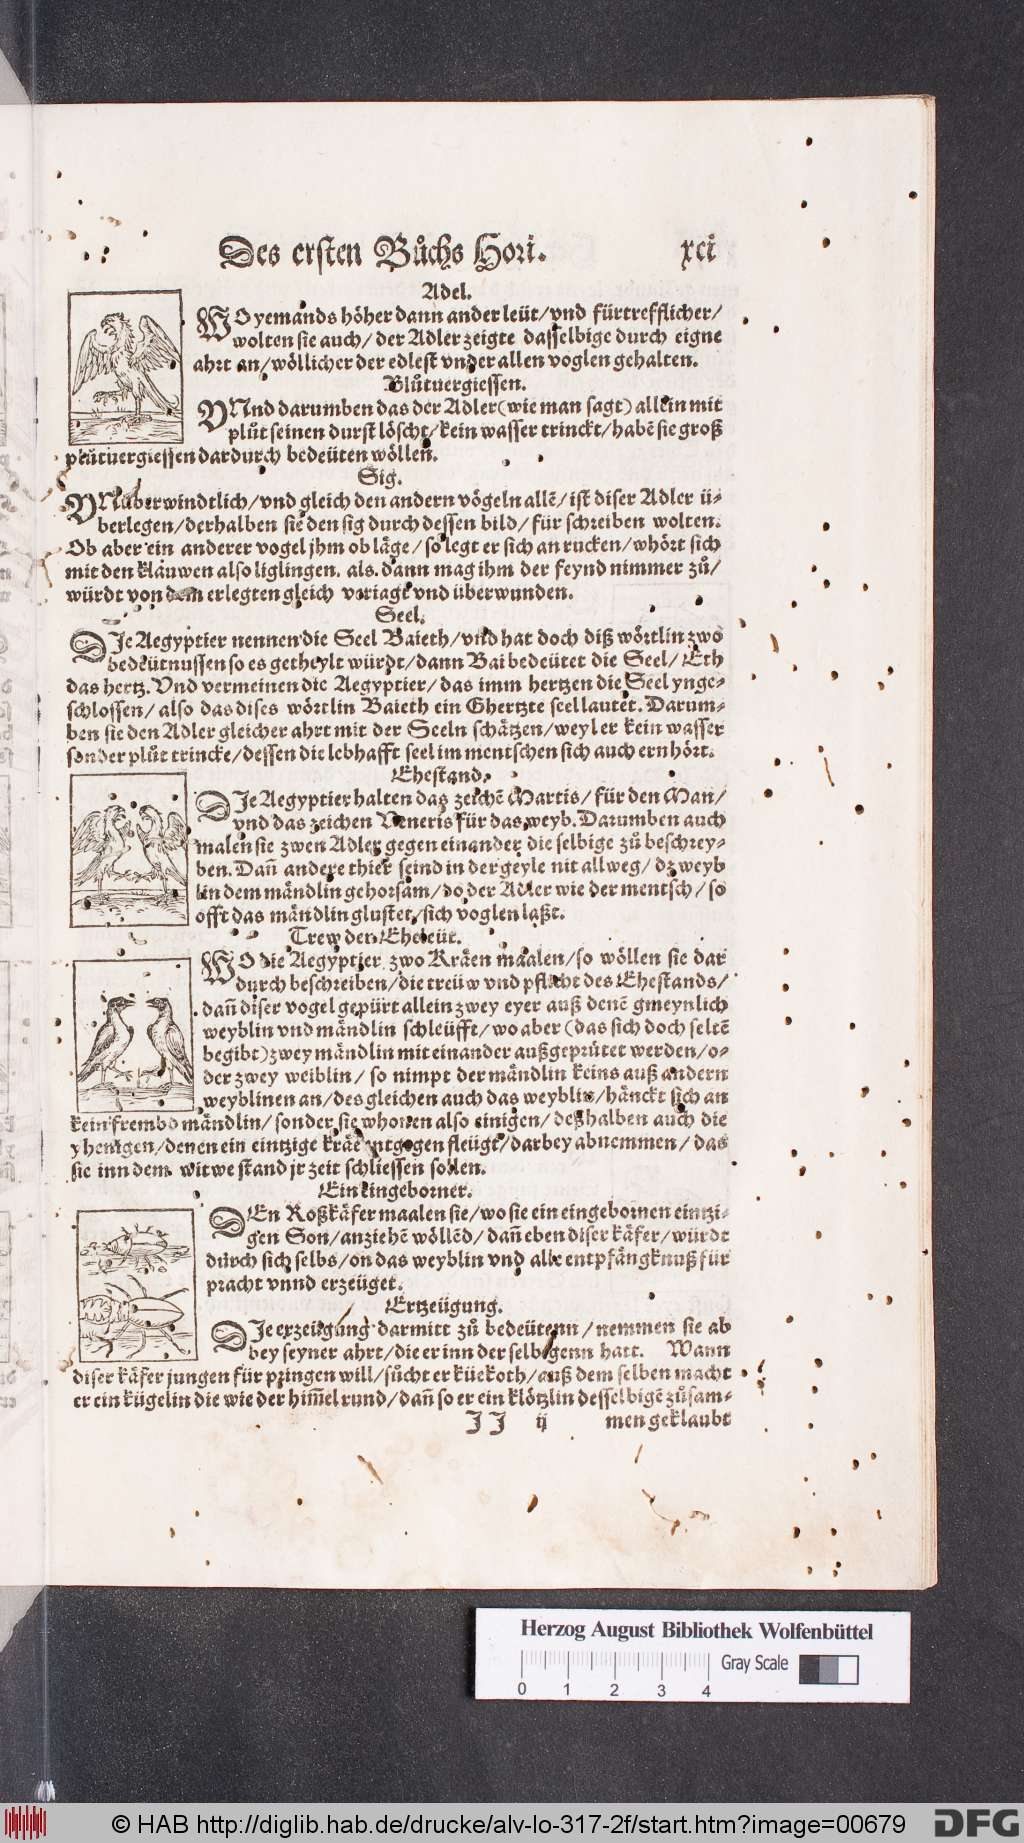 Des ersten Bůchs Hori. xci
Adel.
WO yemands höher dann ander leüt/vnd fürtrefflicher/
wolten sie auch/ der Adler zeigte dasselbige durch eigne
ahrt an/wöllicher der edlest vnder allen voglen gehalten.
Blůtuergiessen.
VNnd darumben das der Adler (wie man sagt) allein mit
plůt seinen durst löscht/kein wasser trinckt/habē sie groß
plůtuergiessen dardurch bedeüten wöllen.
Sig.
VNüberwindtlich/vnd gleich den andern vögeln allē/ist diser Adler ü-
berlegen/derhalben sie den sig durch dessen bild/für schreiben wolten.
Ob aber ein anderer vogel jhm ob läge/so legt er sich an rucken/whört sich
mit den klauwen also liglingen. als. dann mag ihm der feynd nimmer zů/
würdt von dem erlegten gleich veriagt vnd überwunden.
Seel.
DJe Aegyptier nennen die Seel Baieth/vnd hat doch diß wörtlin zwo
bedeütnussen so es getheylt würdt/dann Bai bedeütet die Seel/Eth
das hertz. Vnd vermeinen die Aegyptier/das imm hertzen die Seel ynge-
schlossen/also das dises wörtlin Baieth ein Ghertzte seel lautet. Darum-
ben sie den Adler gleicher ahrt mit der Seeln schätzen/weyl er kein wasser
sonder plůt trincke/dessen die lebhafft seel im mentschen sich auch ernhört.
Ehestand.
DJe Aegyptier halten das zeichē Martis/für den Man/
vnd das zeichen Veneris für das weyb. Darumben auch
malen sie zwen Adler gegen einander die selbige zů beschrey-
ben. Dañ andere thier seind in der geyle nit allweg/dz weyb
lin dem mändlin gehorsam/do der Adler wie der mentsch/so
offt das mändlin glustet/sich voglen laßt.
Trew der Eheleüt.
WO die Aegyptier zwo Kräen maalen/so wöllen sie dar
durch beschreiben/die treüw vnd pflicht des Ehestands/
dañ diser vogel gepürt allein zwey eyer auß denē gmeynlich
weyblin vnd mändlin schleüfft/wo aber (das sich doch seltē
begibt) zwey mändlin mit einander außgeprütet werden/o-
der zwey weiblin/so nimpt der mändlin keins auß andern
weyblinen an/des gleichen auch das weyblin/hänckt sich an
kein frembd mändlin/sonder sie whonen also einigen/deßhalben auch die
yhenigen/denen ein eintzige kräe entgegen fleügt/darbey abnemmen/das
sie inn dem witwe stand jr zeit schliessen sollen.
Ein eingeborner.
DEn Roßkäfer maalen sie/wo sie ein eingebornen eintzi-
gen Son/anziehē wöllēd/dañ eben diser käfer/würdt
durch sich selbs/on das weyblin vnd alle entpfängknuß für
pracht vnnd erzeüget.
Ertzeügung.
DJe erzeügung darmitt zů bedeütenn/nemmen sie ab
bey seyner ahrt/die er inn der selbigenn hatt. Wann
diser käfer jungen für pringen will/sůcht er küekoth/auß dem selben macht
er ein kügelin die wie der him̃el rund/dañ so er ein klötzlin desselbigē zůsam-
JJ ij men geklaubt
Herzog August Bibliothek Wolfenbüttel
Gray Scale
0 1 2 3 4
© HAB http://diglib.hab.de/drucke/alv-lo-317-2f/start.htm?image=00679 DFG